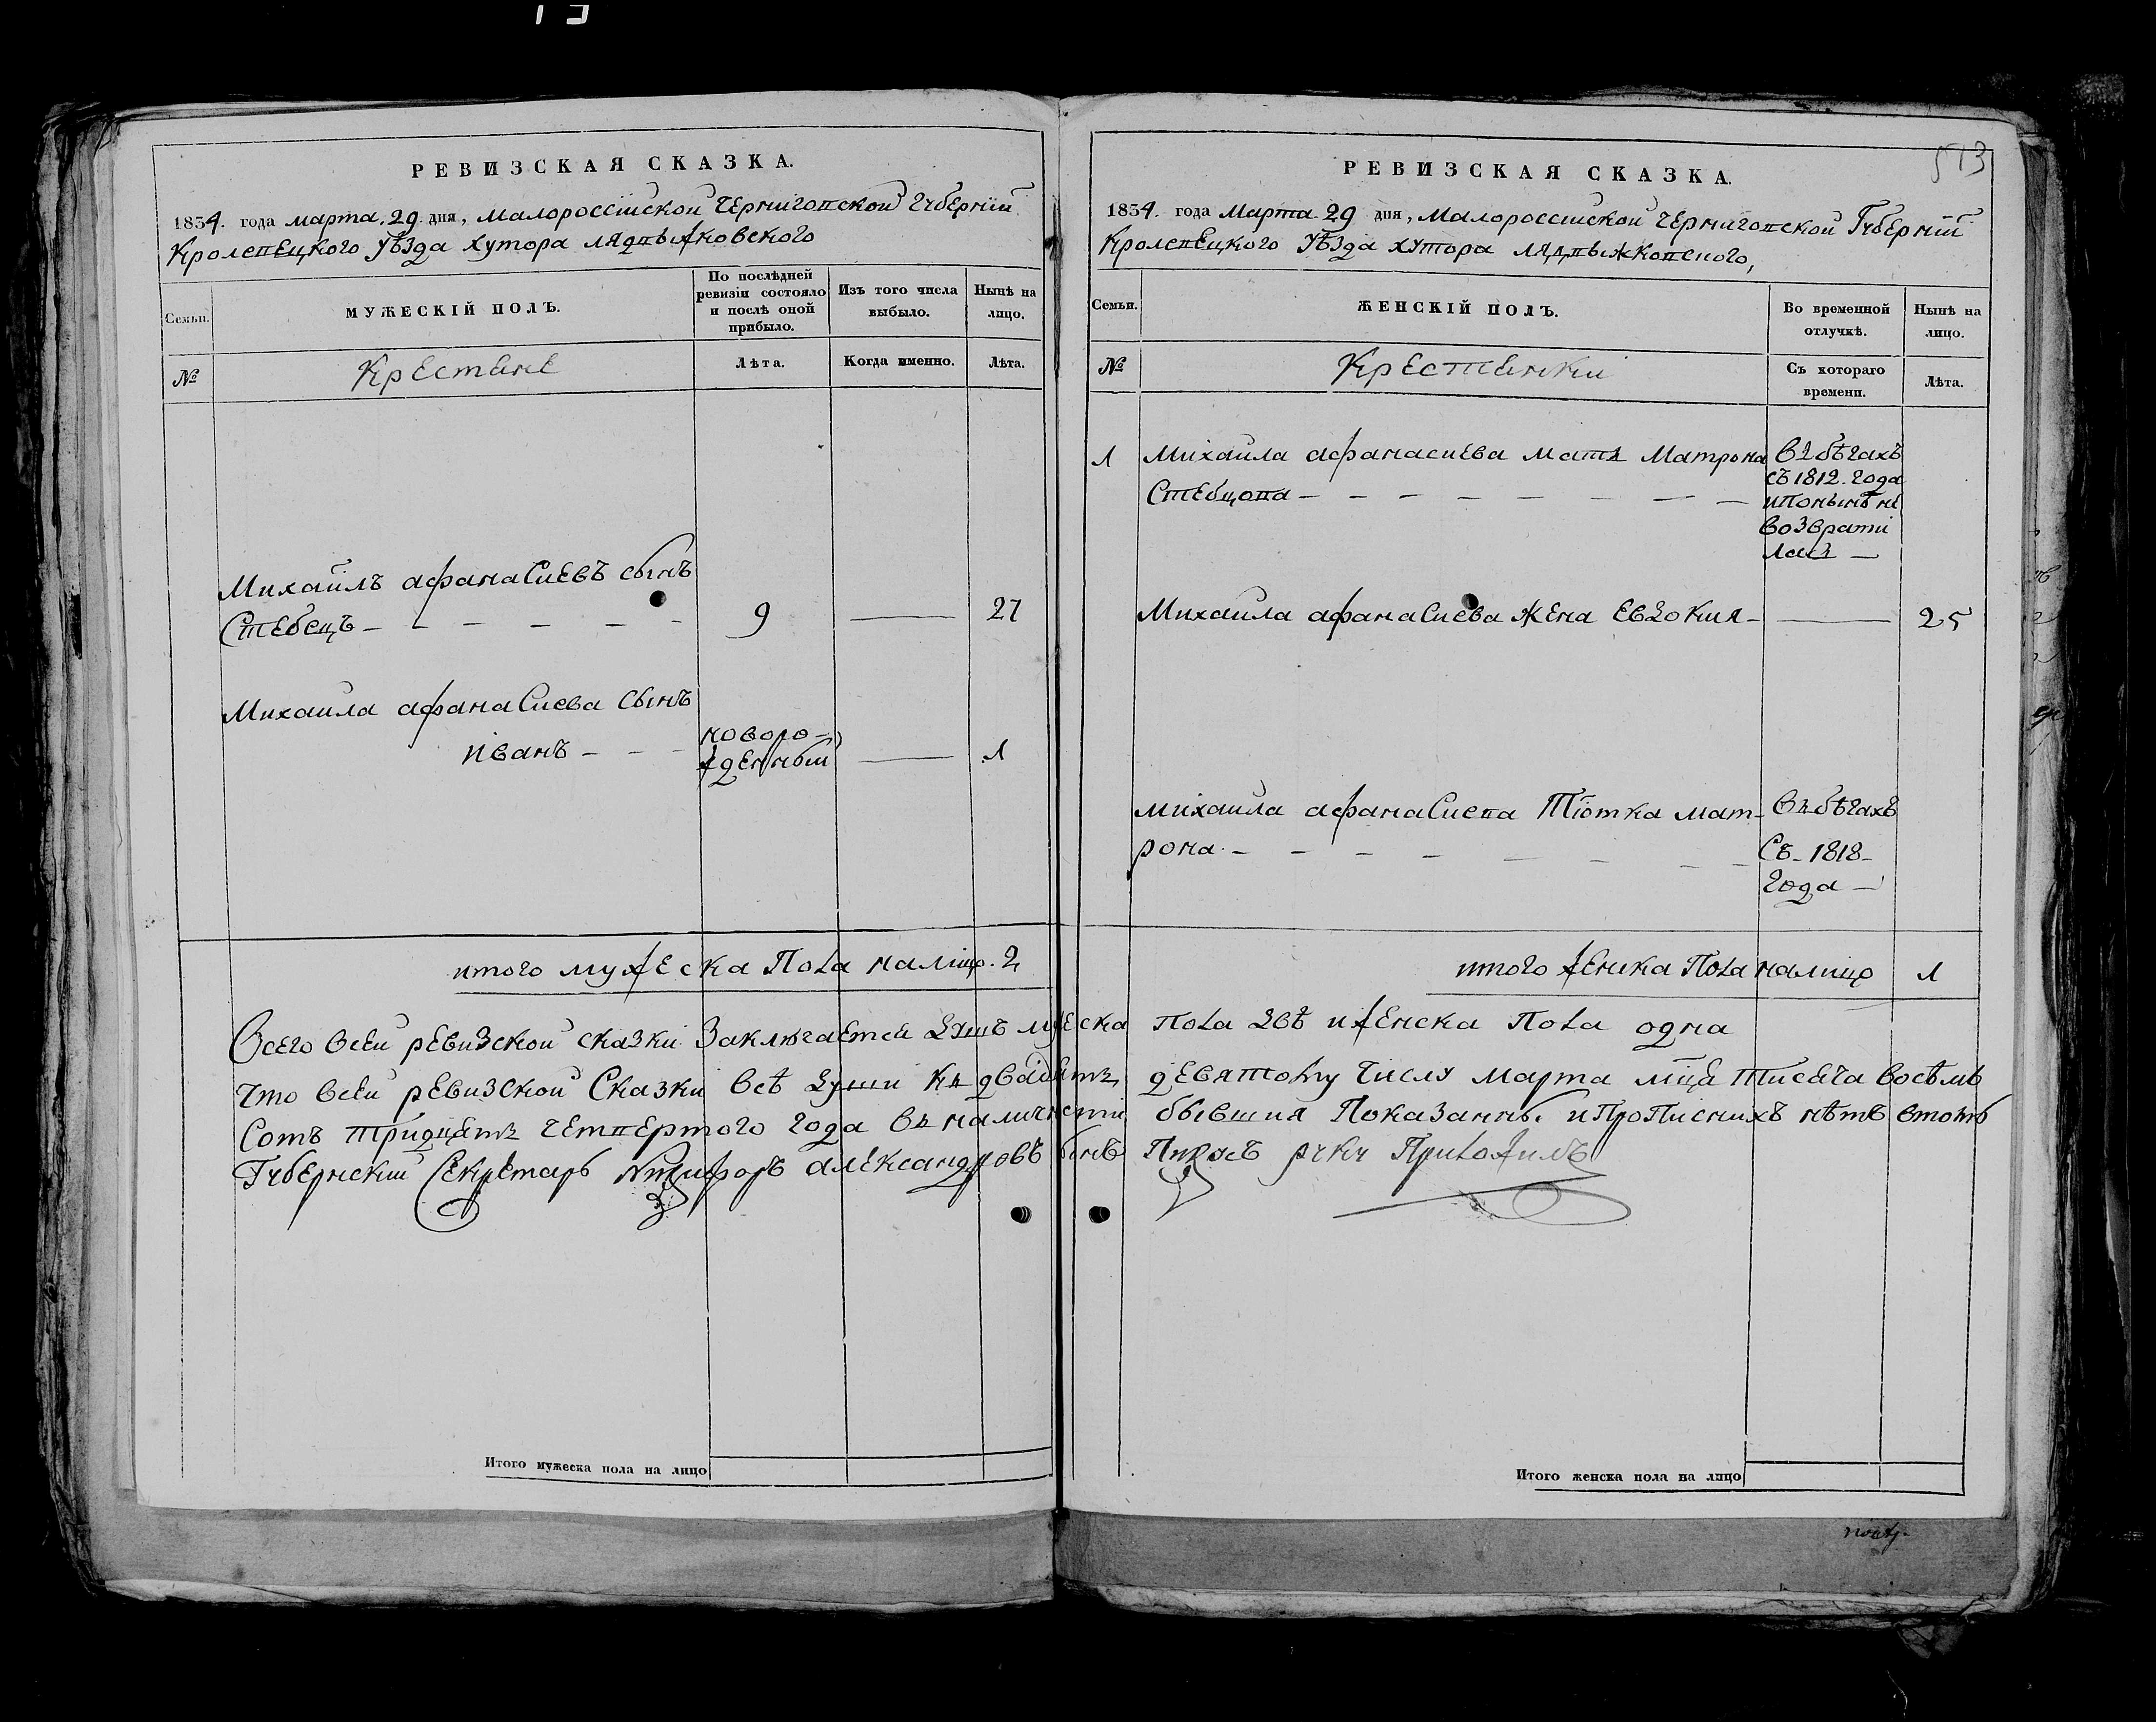 513
РЕВИЗСКАЯ СКАЗКА.
1834. года марта. 29. дня, Малороссійской Черниговской Губерніи
Кролевецкого уѣзда хутора
Семьи.
МУЖЕСКІЙ ПОЛЪ.
По послѣдней
ревизіи состояло
и послѣ оной
прибыло.
Изъ того числа
выбыло.
Нынѣ на
лицо.
№
Крестяне
Лѣта.
Когда именно.
Лѣта.
Михайлъ афанасиевъ сынъ
Стебецъ
9
27
Михаила афанасиева сынъ
иванъ
новоро-
жденный
1
итого мужеска пола налицо. 2
РЕВИЗСКАЯ СКАЗКА.
1834. года Марта 29 дня, Малороссійской Черниговской Губерніи
Кролевецкого уѣзда хутора
Семьи.
ЖЕНСКІЙ ПОЛЪ.
Во временной
отлучкѣ.
Нынѣ на
лицо.
№
Крестянки
Съ котораго
времени.
Лѣта.
1
Михайла афанасиева мать Матрона
Стебцова
въ бѣгахъ
съ 1812. года
и понынѣ не
возврати
лась
Михаила афанасиева жена Евдокия
25
Михаила афанасиева Тіотка мат-
рона
въ бѣгахъ
Съ 1818
года
итого женска пола налицо 1
Всего всей ревизской сказки заключается душъ мужеска пола двѣ и женска пола одна
что всей ревизской Сказки всѣ души къ двадцять девятому числу марта мца тисяча восѣмъ
сотъ тридцять четвертого года въ наличности бывшия показанны и прописнихъ нѣтъ втомъ
Губернский Секретарь Никифоръ александровъ сынъ руку приложилъ
Итого мужеска пола на лицо
Итого женска пола на лицо